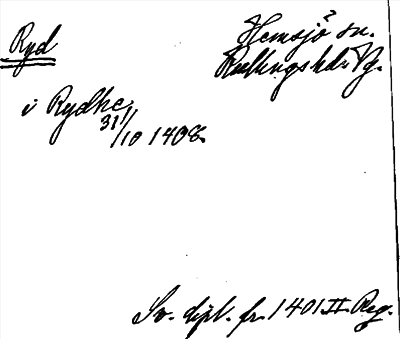 Ryd
Hemsjö sn.
Kullings hd. Vg.
i Rydhe
31/10 1408
Sv. dipl. fr. 1401 II. Reg.